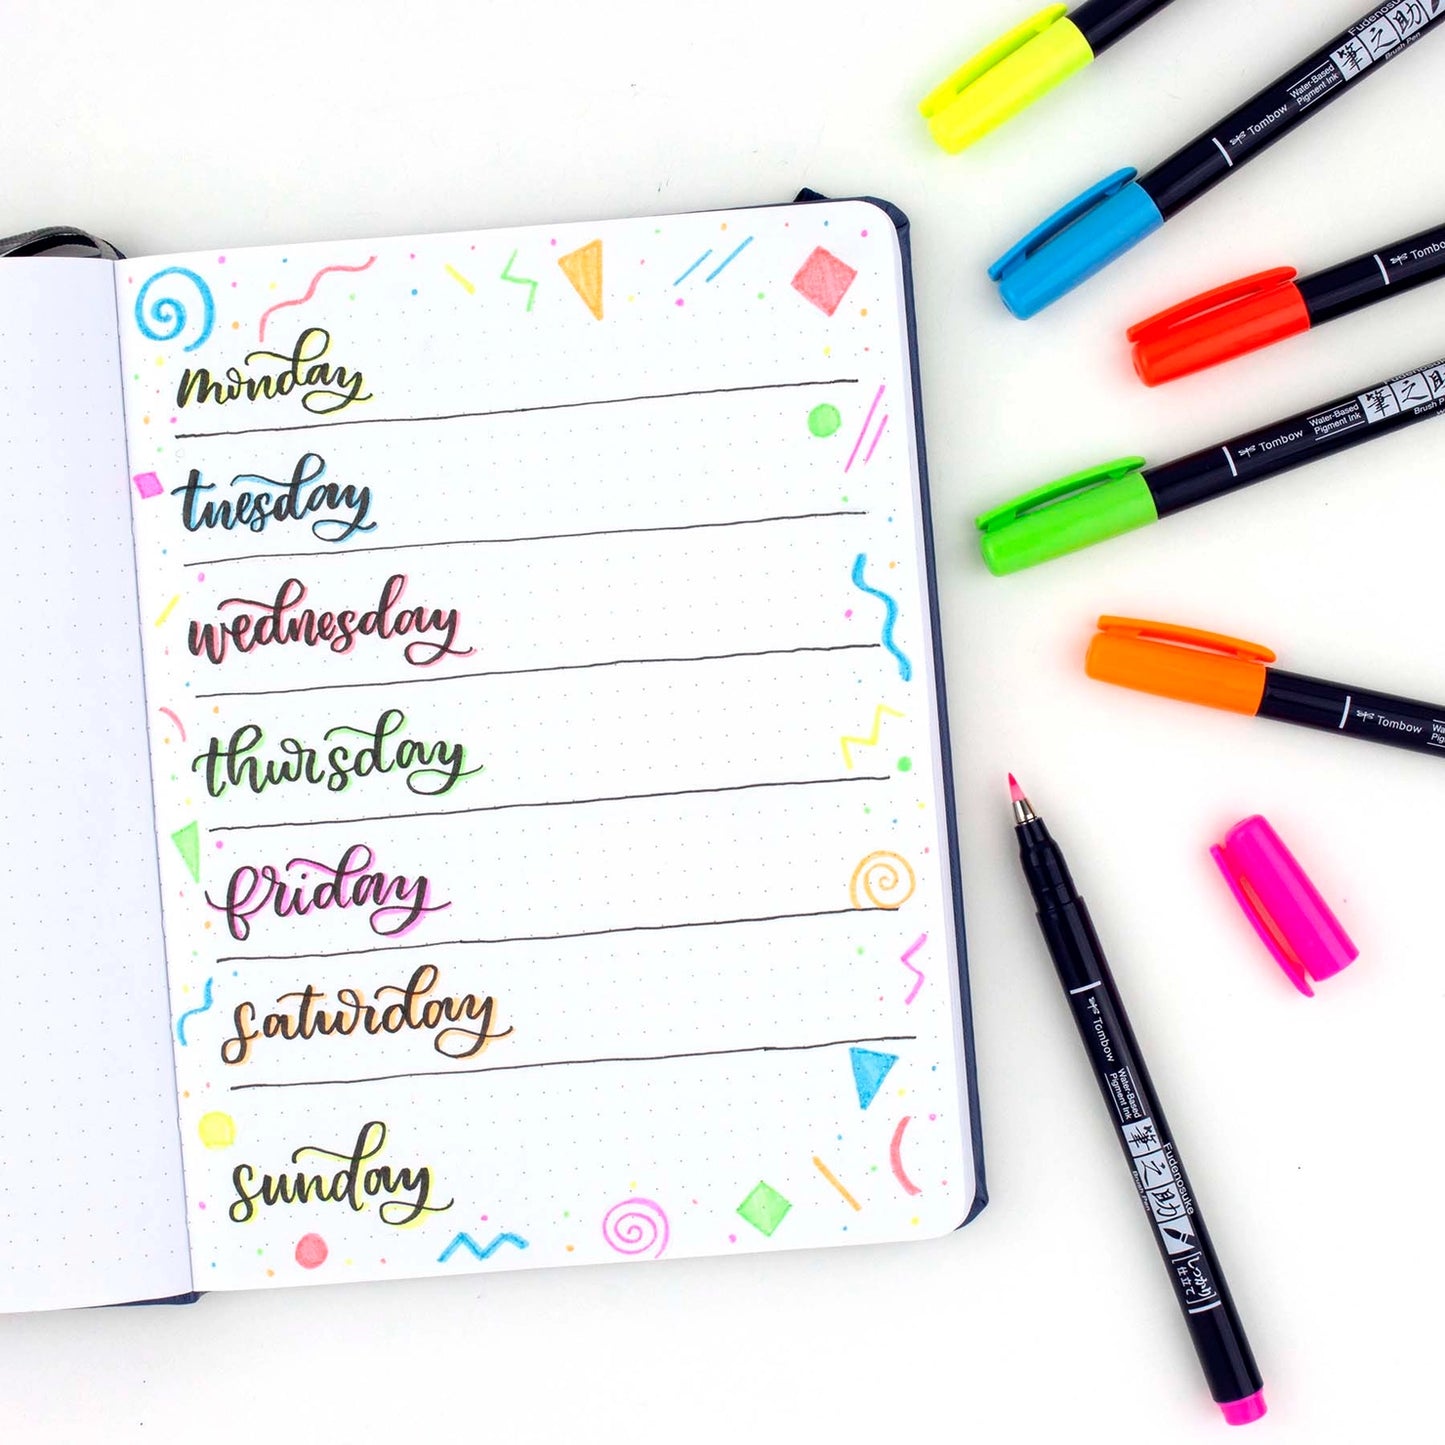 monday
tuesday
wednesday
thursday
friday
saturday
sunday
Fudenosuke
Brush Pen
筆之助
Water-Based
Pigment Ink
Tombow
Tombow
Fudenosuke
Brush
筆之助
Water-Based
Pigment Ink
Tombow
Tombow
Tombow
Water-Based
Pigment Ink
筆之助
Fudenosuke
Brush Pen
しっかり